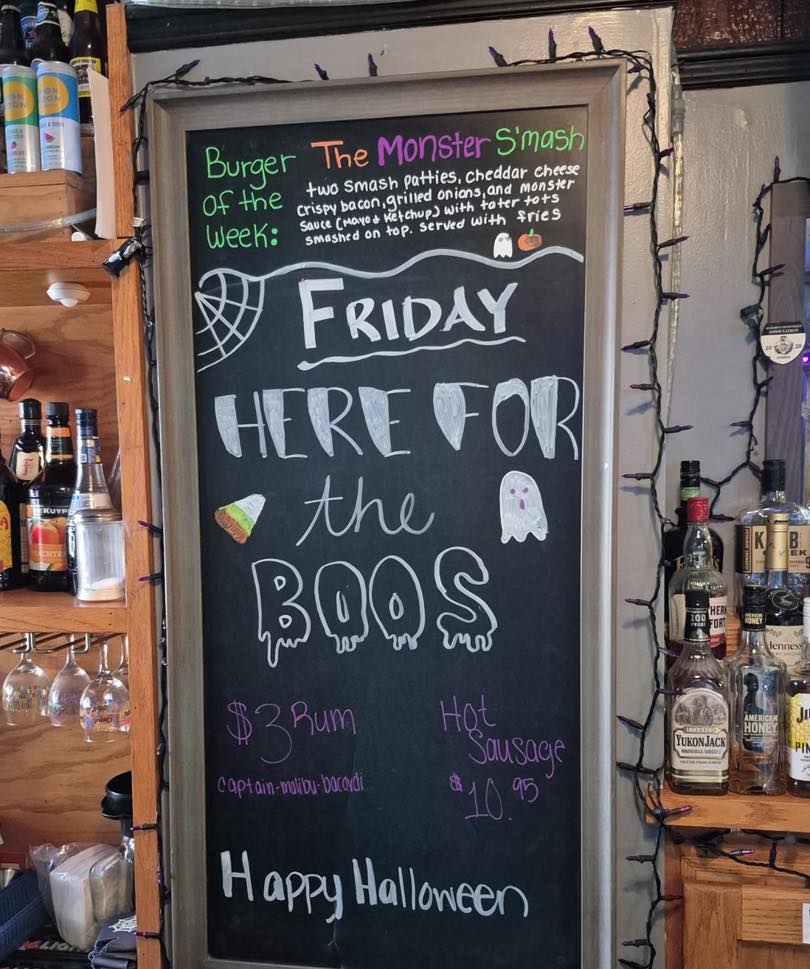 Burger The Monster S'mash
of the
Week:
two smash patties, cheddar cheese
crispy bacon, grilled onions, and monster
sauce (mayo & ketchup) with tater tots
smashed on top. served with fries
FRIDAY
HERE FOR
the
BOOS
$3 Rum
captain-malibu-bacardi
Hot
Sausage
$10.95
Happy Halloween
DEKUYPER
YUKON JACK
100
AMERICAN
HONEY
Hennessy
ASSOCIATION